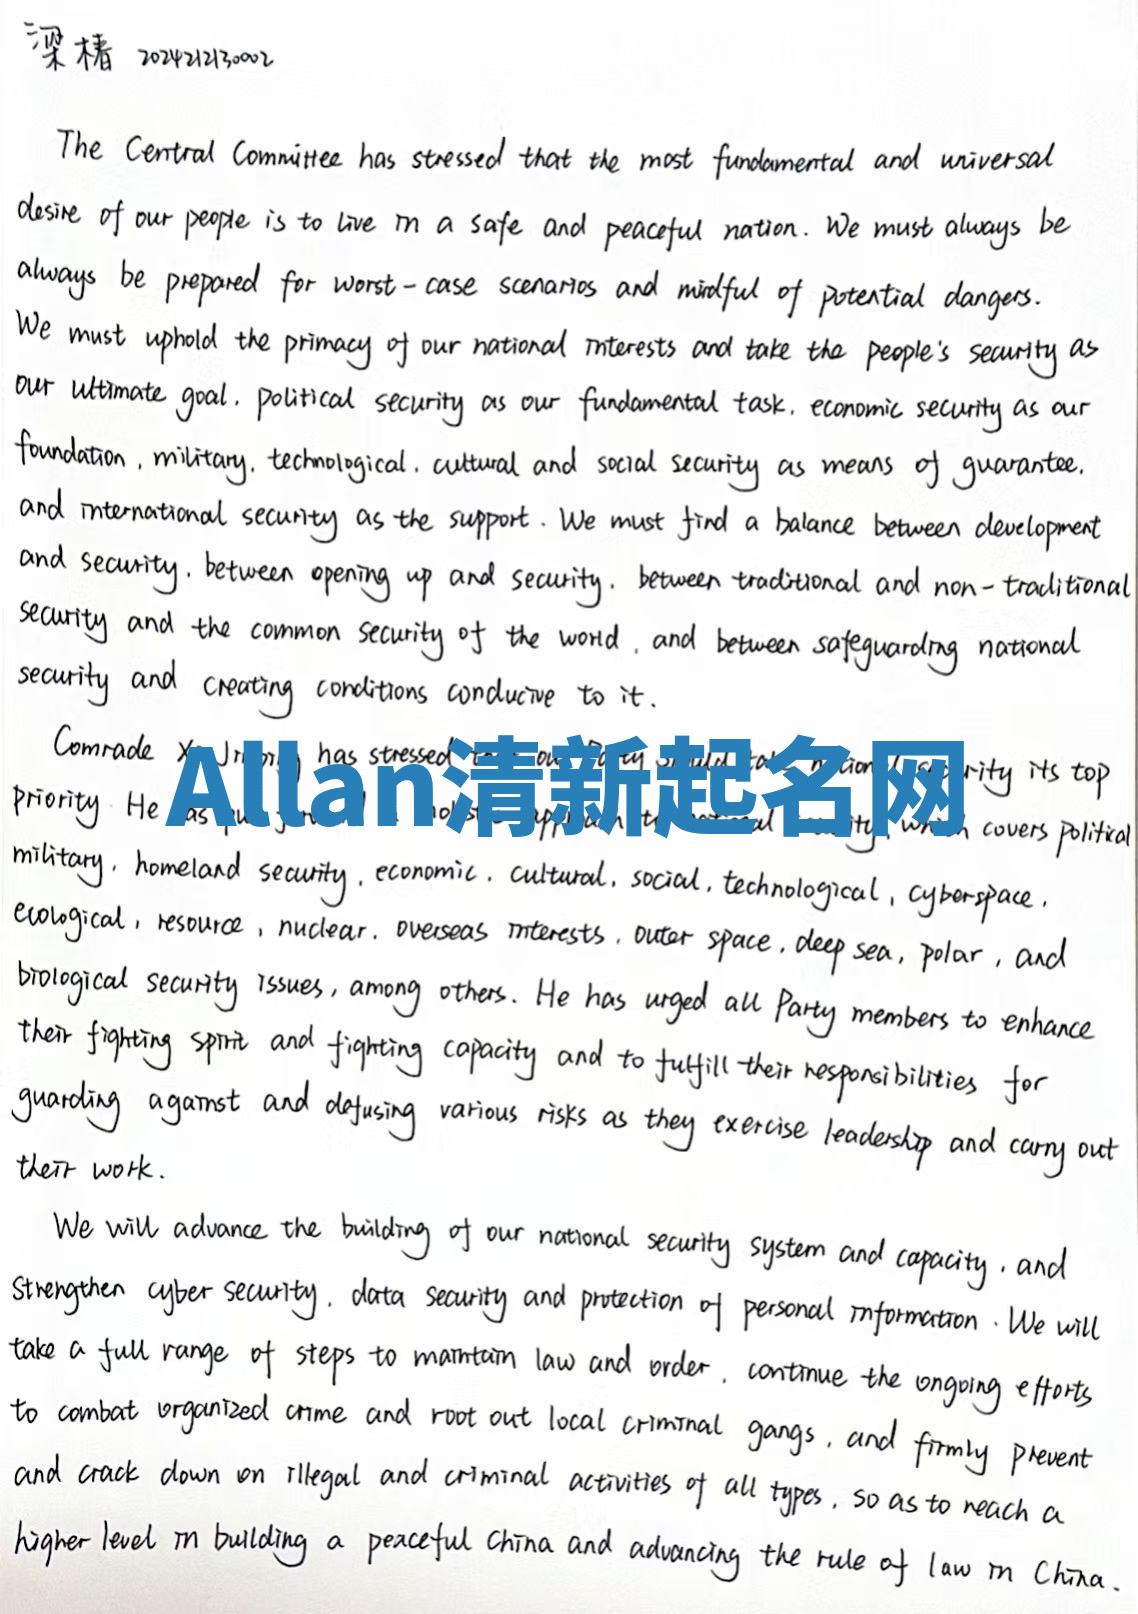 梁楮 2024212130002
The Central Committee has stressed that the most fundamental and universal
desire of our people is to live in a safe and peaceful nation. We must always be
always be prepared for worst-case scenarios and mindful of potential dangers.
We must uphold the primacy of our national interests and take the people's security as
our ultimate goal, political security as our fundamental task, economic security as our
foundation, military, technological, cultural and social security as means of guarantee,
and international security as the support. We must find a balance between development
and security, between opening up and security, between traditional and non-traditional
security and the common security of the world, and between safeguarding national
security and creating conditions conducive to it.
Comrade has stressed its top
Allan清新起名网
priority. He covers political
military, homeland security, economic, cultural, social, technological, cyberspace,
ecological, resource, nuclear, overseas interests, outer space, deep sea, polar, and
biological security issues, among others. He has urged all Party members to enhance
their fighting spirit and fighting capacity and to fulfill their responsibilities for
guarding against and defusing various risks as they exercise leadership and carry out
their work.
We will advance the building of our national security system and capacity, and
strengthen cyber security, data security and protection of personal information. We will
take a full range of steps to maintain law and order, continue the ongoing efforts
to combat organized crime and root out local criminal gangs, and firmly prevent
and crack down on illegal and criminal activities of all types, so as to reach a
higher level in building a peaceful China and advancing the rule of law in China.